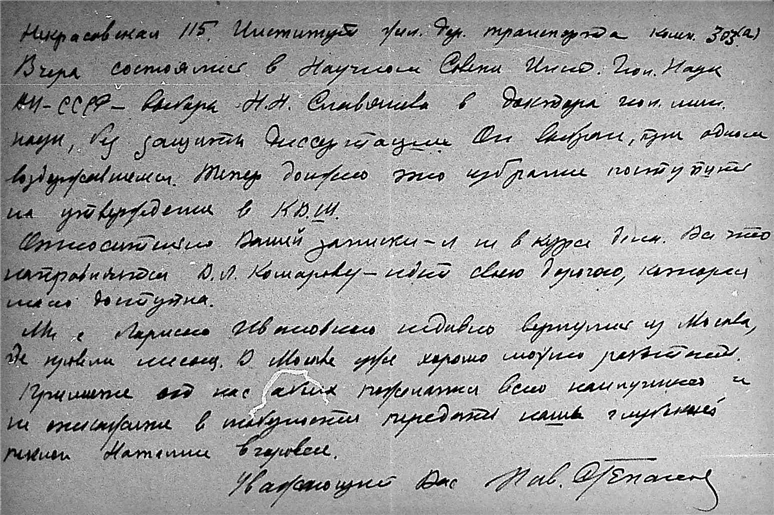 Некрасовская 115. Институт жел. дор. транспорта комн. 303(а)
Вчера состоялись в Научном Совете Инст. Геол. Наук
АН-СССР – выборы Н.Н. Славянова в доктора геол. мин.
наук, без защиты диссертации. Он выбран, при одном
воздержавшемся. Теперь должно это избрание поступить
на утверждение в КВШ.
Относительно Вашей записки – я не в курсе дела. Все что
направляется В.Л. Комарову – идет своею дорогою, которая
мало доступна.
Мы с Ларисою Ивановною недавно вернулись из Москвы,
где провели месяц. В Москве уже хорошо можно работать.
Примите от нас обоих пожелания всего наилучшего и
не откажите в передать наш глубокий
поклон Наталии Егоровне.
Уважающий Вас Пав. Степанов